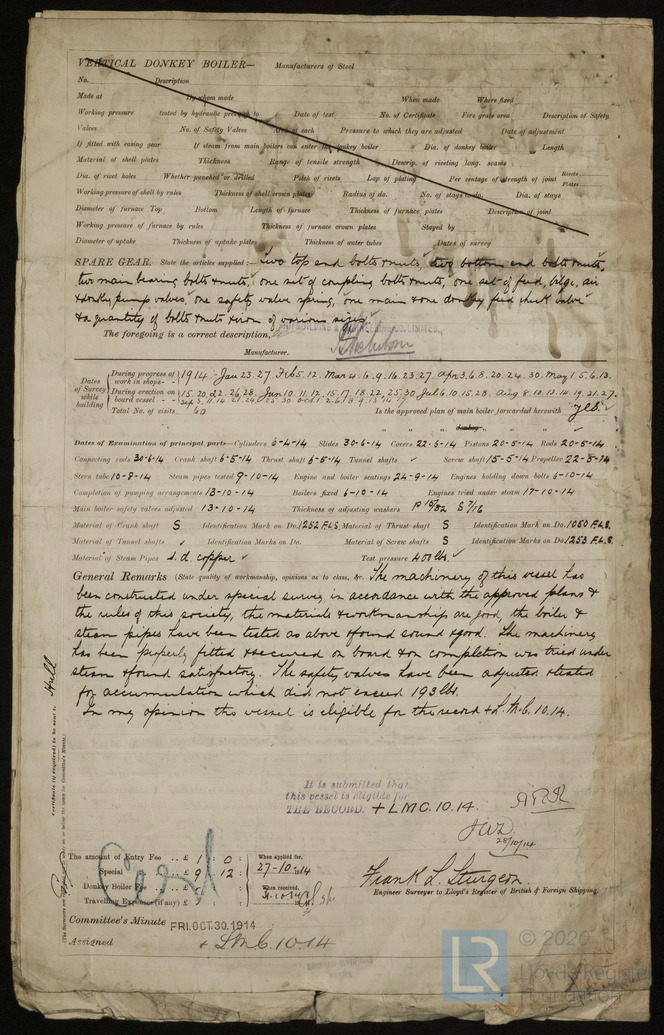 VERTICAL DONKEY BOILER— Manufacturers of Steel
No. Description
Made at By whom made When made Where fixed
Working pressure tested by hydraulic pressure to Date of test No. of Certificate Fire grate area Description of Safety
Valves No. of Safety Valves Area of each Pressure to which they are adjusted Date of adjustment
If fitted with easing gear If steam from main boilers can enter the donkey boiler Dia. of donkey boiler Length
Material of shell plates Thickness Range of tensile strength Descrip. of riveting long. seams
Dia. of rivet holes Whether punched or drilled Pitch of rivets Lap of plating Per centage of strength of joint Rivets Plates
Working pressure of shell by rules Thickness of shell crown plates Radius of do. No. of stays to do. Dia. of stays
Diameter of furnace Top Bottom Length of furnace Thickness of furnace plates Description of joint
Working pressure of furnace by rules Thickness of furnace crown plates Stayed by
Diameter of uptake Thickness of uptake plates Thickness of water tubes Dates of survey
SPARE GEAR. State the articles supplied:— two top end bolts & nuts, two bottom end bolts & nuts,
two main bearing bolts & nuts, one set of coupling bolts & nuts, one set of feed, bilge, air
& donkey pump valves, one safety valve spring, one main & one donkey feed check valve
& a quantity of bolts & nuts & iron of various sizes.
The foregoing is a correct description,
SHIPBUILDING & ENGINEERING CO. LIMITED,
Manufacturer.
Dates of Survey while building
During progress of work in shops - 1914 Jan 23. 27. Feb 5. 12. Mar 4. 6. 9. 16. 23. 27. Apr 3. 6. 8. 20. 24. 30. May 1. 5. 6. 13.
During erection on board vessel - 15. 20. 22. 26. 28. Jun 10. 11. 12. 15. 17. 18. 22. 25. 30 Jul 6. 10. 15. 28. Aug 8. 10. 13. 14. 19. 21. 27.
Total No. of visits 60 Is the approved plan of main boiler forwarded herewith yes.
" " " donkey " "
Dates of Examination of principal parts—Cylinders 6-4-14 Slides 30-6-14 Covers 22-6-14 Pistons 20-5-14 Rods 20-5-14
Connecting rods 30-6-14 Crank shaft 6-5-14 Thrust shaft 6-5-14 Tunnel shafts ✓ Screw shaft 15-5-14 Propeller 22-5-14
Stern tube 10-8-14 Steam pipes tested 9-10-14 Engine and boiler seatings 24-9-14 Engines holding down bolts 6-10-14
Completion of pumping arrangements 13-10-14 Boilers fixed 6-10-14 Engines tried under steam 17-10-14
Main boiler safety valves adjusted 13-10-14 Thickness of adjusting washers P 13/32 S 7/16
Material of Crank shaft S Identification Mark on Do. 1252 F.L.S. Material of Thrust shaft S Identification Mark on Do. 1050 F.L.S.
Material of Tunnel shafts ✓ Identification Marks on Do. Material of Screw shafts S Identification Marks on Do. 1253 F.L.S.
Material of Steam Pipes s.d. copper ✓ Test pressure 400 lbs. ✓
General Remarks (State quality of workmanship, opinions as to class, &c. The machinery of this vessel has
been constructed under special survey in accordance with the approved plans &
the rules of this society, the materials & workmanship are good, the boiler &
steam pipes have been tested as above & found sound & good. The machinery
has been properly fitted & secured on board & on completion was tried under
steam & found satisfactory. The safety valves have been adjusted & tested
for accumulation which did not exceed 193 lbs.
In my opinion the vessel is eligible for the record + L.M.C. 10.14.
It is submitted that
this vessel is eligible for
THE RECORD. + LMC. 10.14.
JWD.
28/10/14
Certificate (if required) to be sent to Hull
The amount of Entry Fee .. £ 1 : 0 : When applied for,
Special .. £ 9 : 12 : 27-10-1914
Donkey Boiler Fee .. £ : : When received,
Travelling Expenses (if any) £ : :
Frank L. Sturgeon.
Engineer Surveyor to Lloyd's Register of British & Foreign Shipping.
Committee's Minute FRI. OCT. 30. 1914
Assigned + L.M.C. 10.14
LR © 2020
Lloyd's Register
Foundation